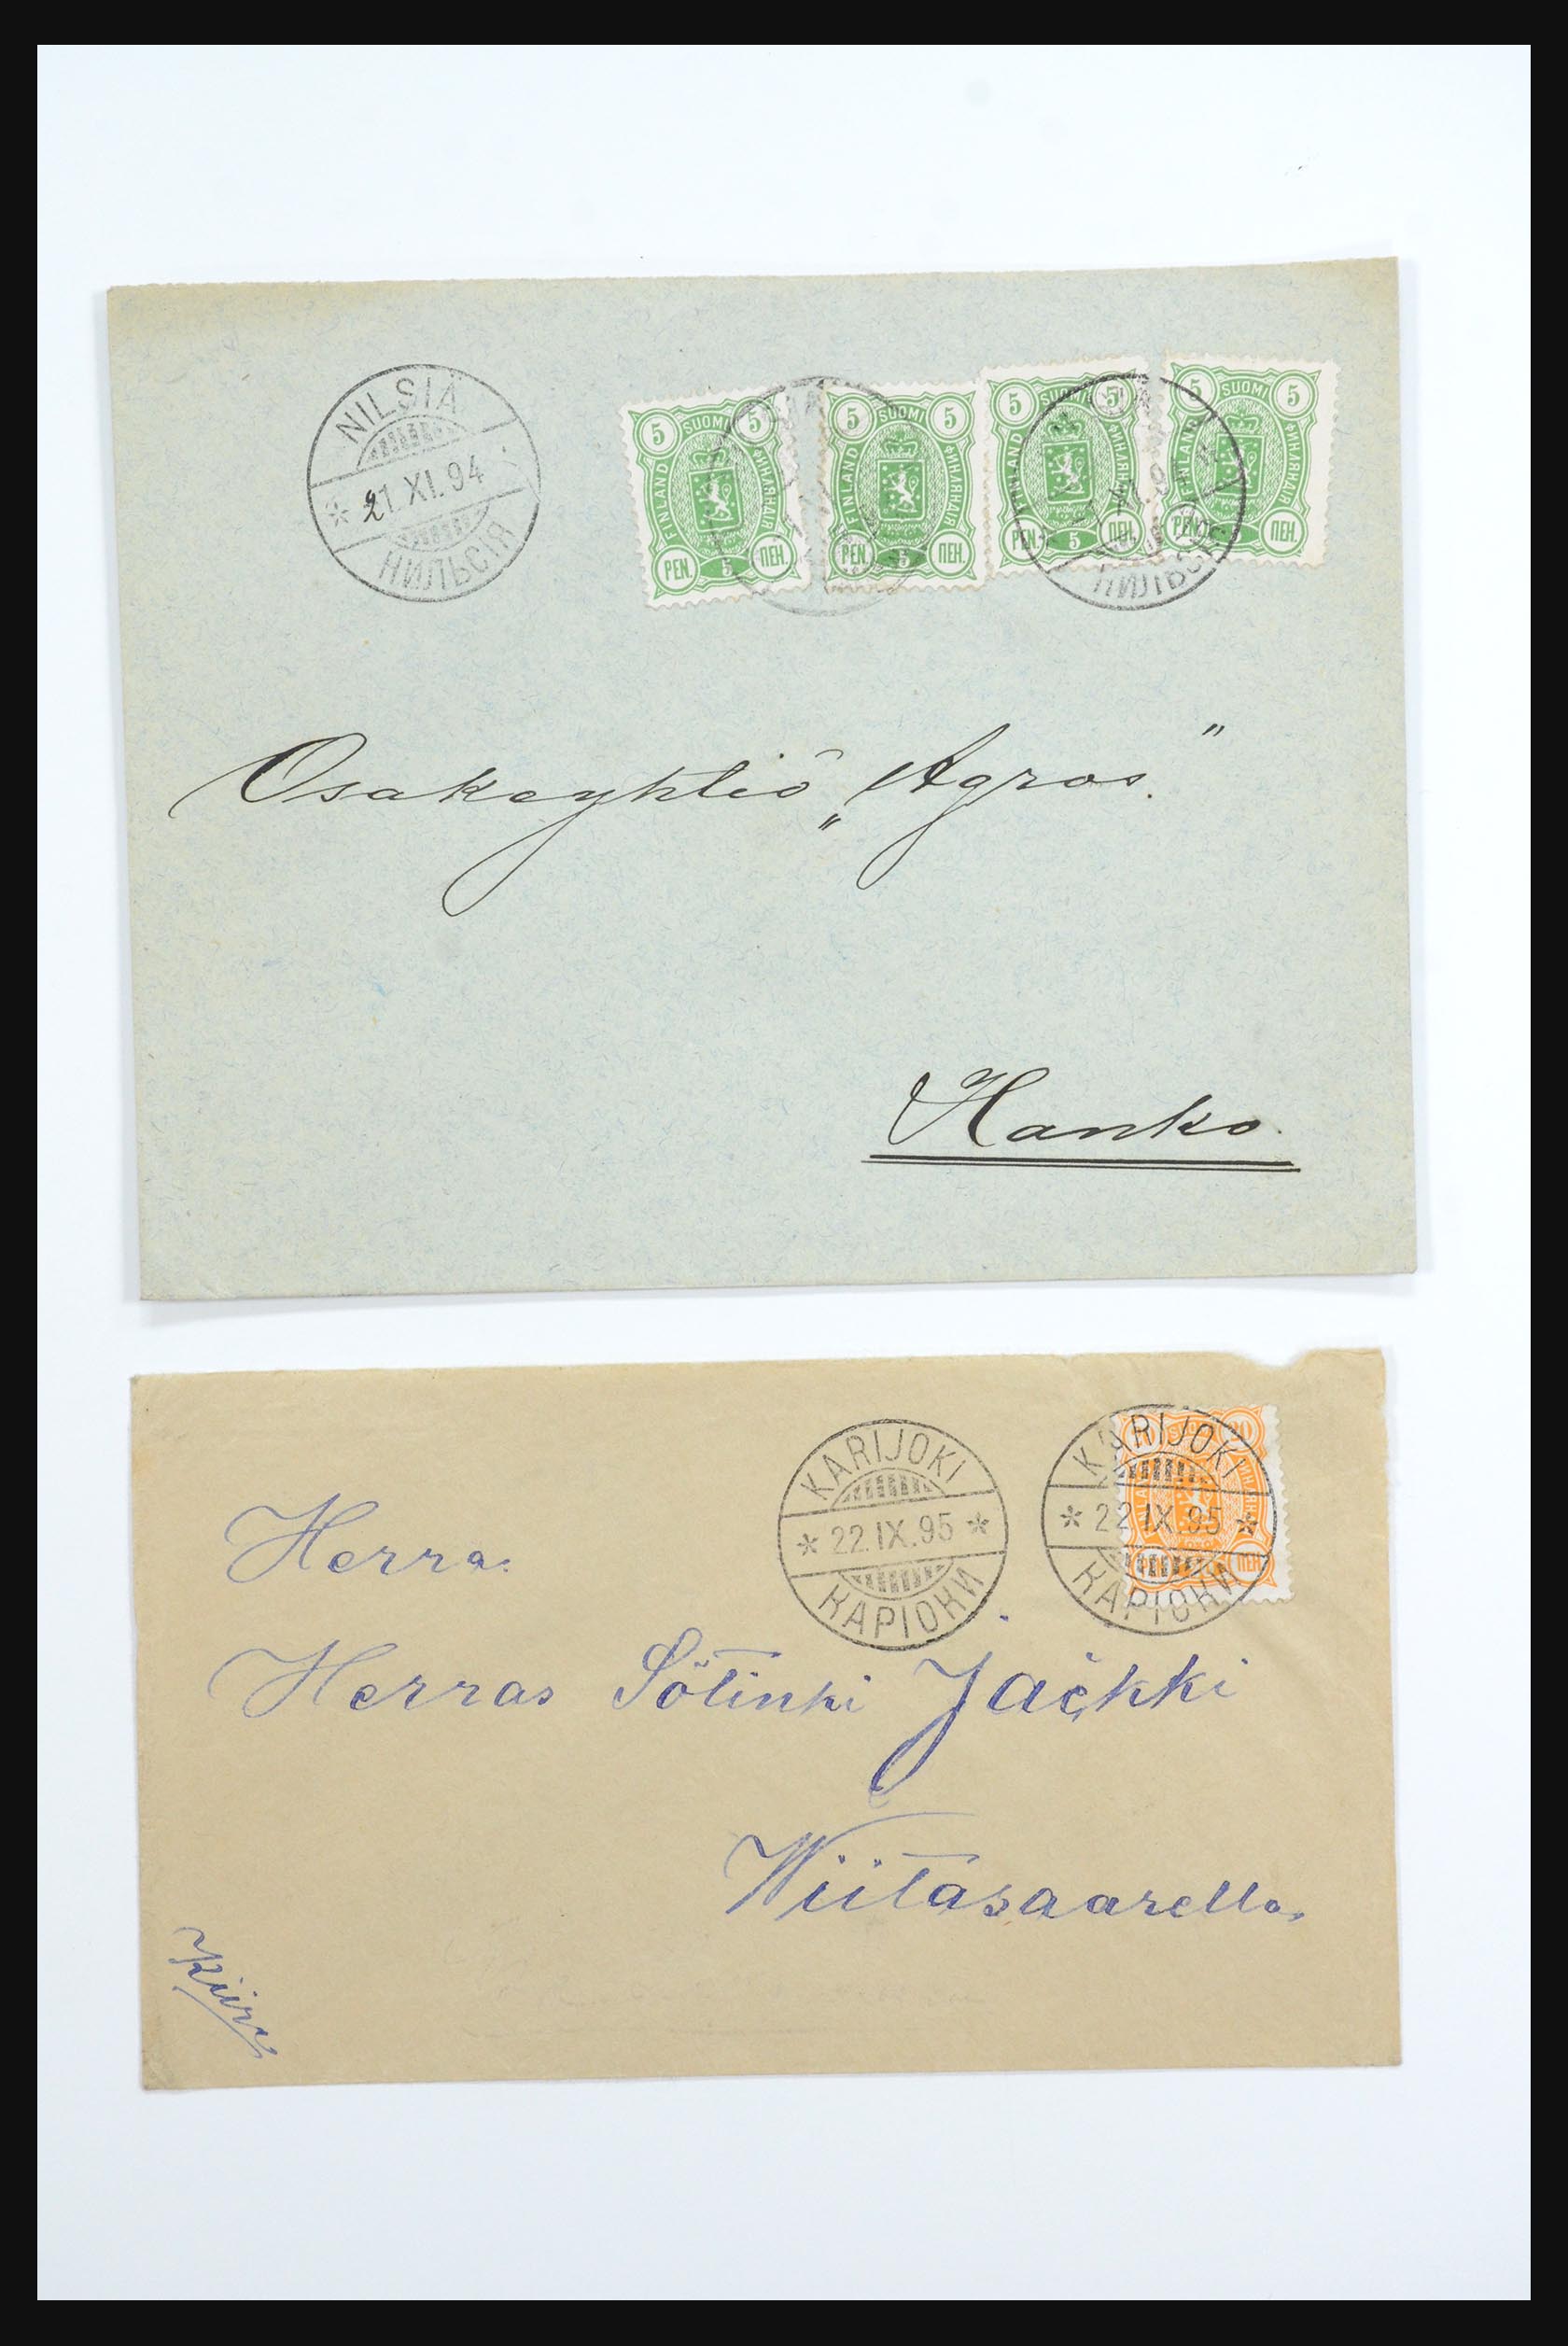 NILSIÄ
21.XI.94
НИЛЬСІЯ
5 SUOMI 5
FINLAND
ФИНЛЯНДІЯ
PEN. 5 ПЕН.
5 SUOMI 5
FINLAND
ФИНЛЯНДІЯ
PEN. 5 ПЕН.
5 SUOMI 5
FINLAND
ФИНЛЯНДІЯ
PEN. 5 ПЕН.
5 SUOMI 5
FINLAND
ФИНЛЯНДІЯ
PEN. ПЕН.
Osakeyhtiö „Agros.”
Hanko.
KARIJOKI
* 22.IX.95 *
КАРІОКИ
KARIJOKI
* 22.IX.95 *
КАРІОКИ
20
ПЕН.
Herra
Herras Sötinki Jäckki
Wiitasaarella